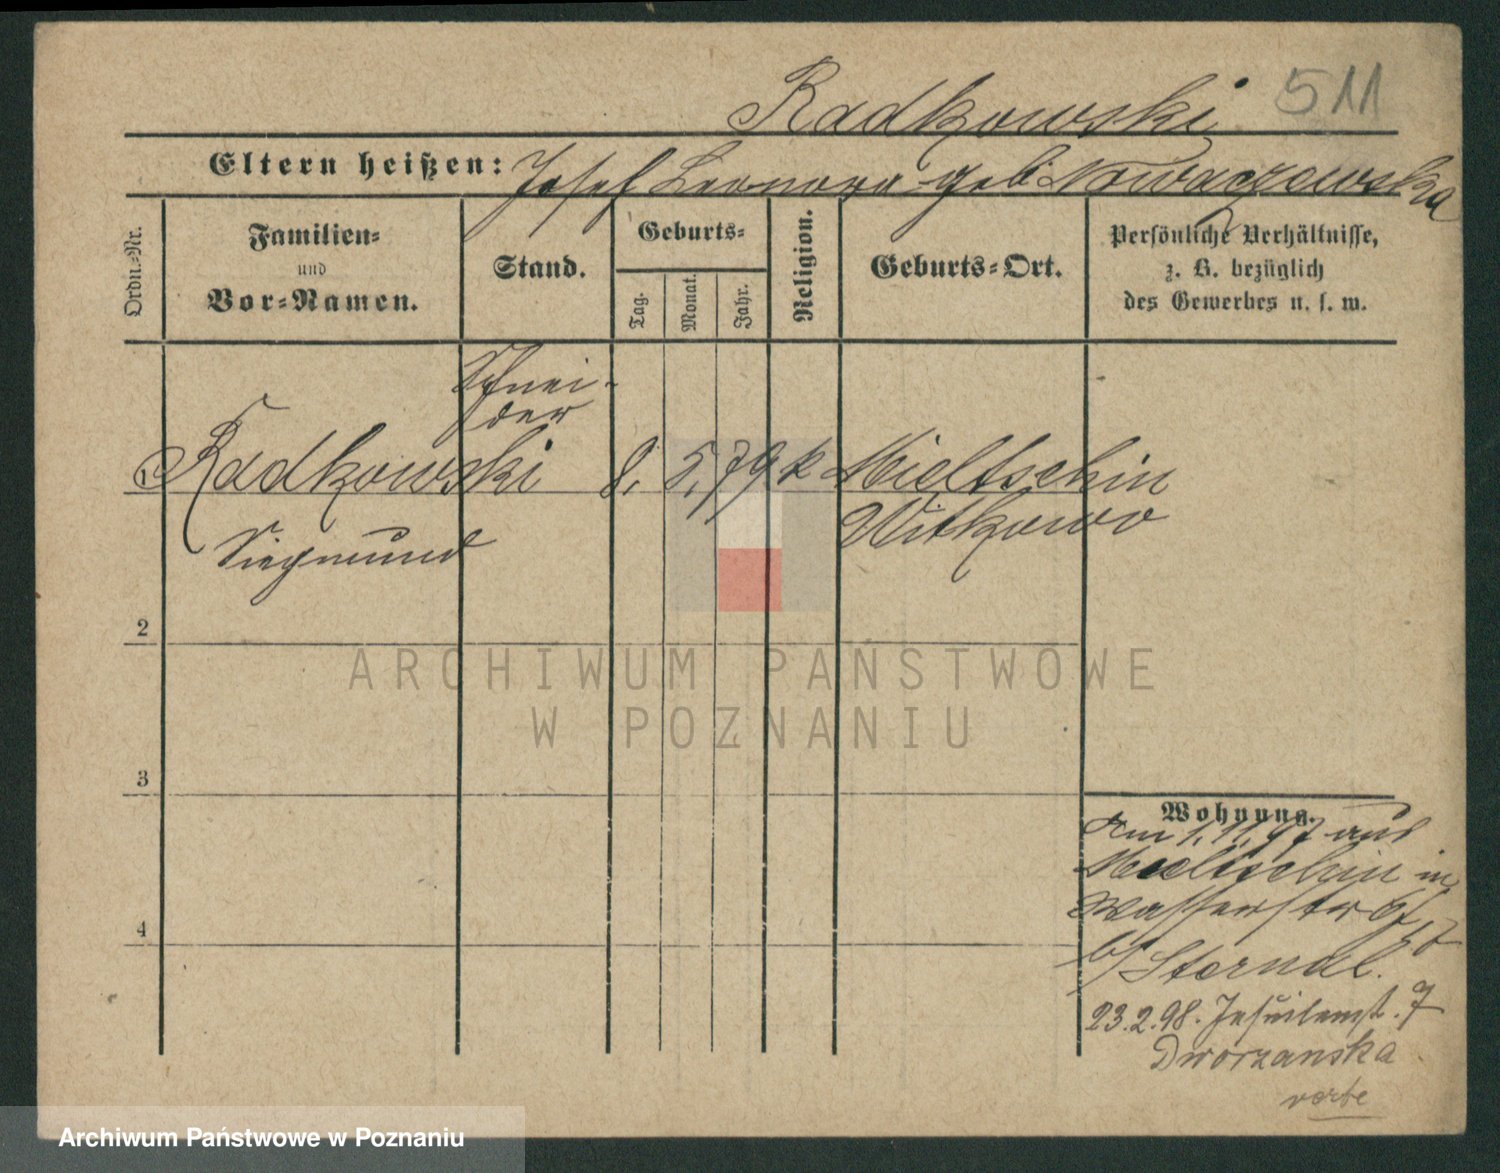 Radkowski 511
Eltern heißen: Josef Leonora geb. Nowaczewska
Ordn.=Nr.
Familien=
und
Vor=Namen.
Stand.
Geburts=
Tag.
Monat.
Jahr.
Religion.
Geburts=Ort.
Persönliche Verhältnisse,
z. B. bezüglich
des Gewerbes u. s. w.
Schnei-
der
1 Radkowski 8. 5. 79 k Mieltschin
Siegmund Witkowo
2
3
4
ARCHIWUM PAŃSTWOWE
W POZNANIU
Wohnung.
Am 1.11.97 aus
Mieltschin in
Wasserstr
b/ Sternal.
23.2.98. Jesuitenst. 7
Dworzanska
Archiwum Państwowe w Poznaniu